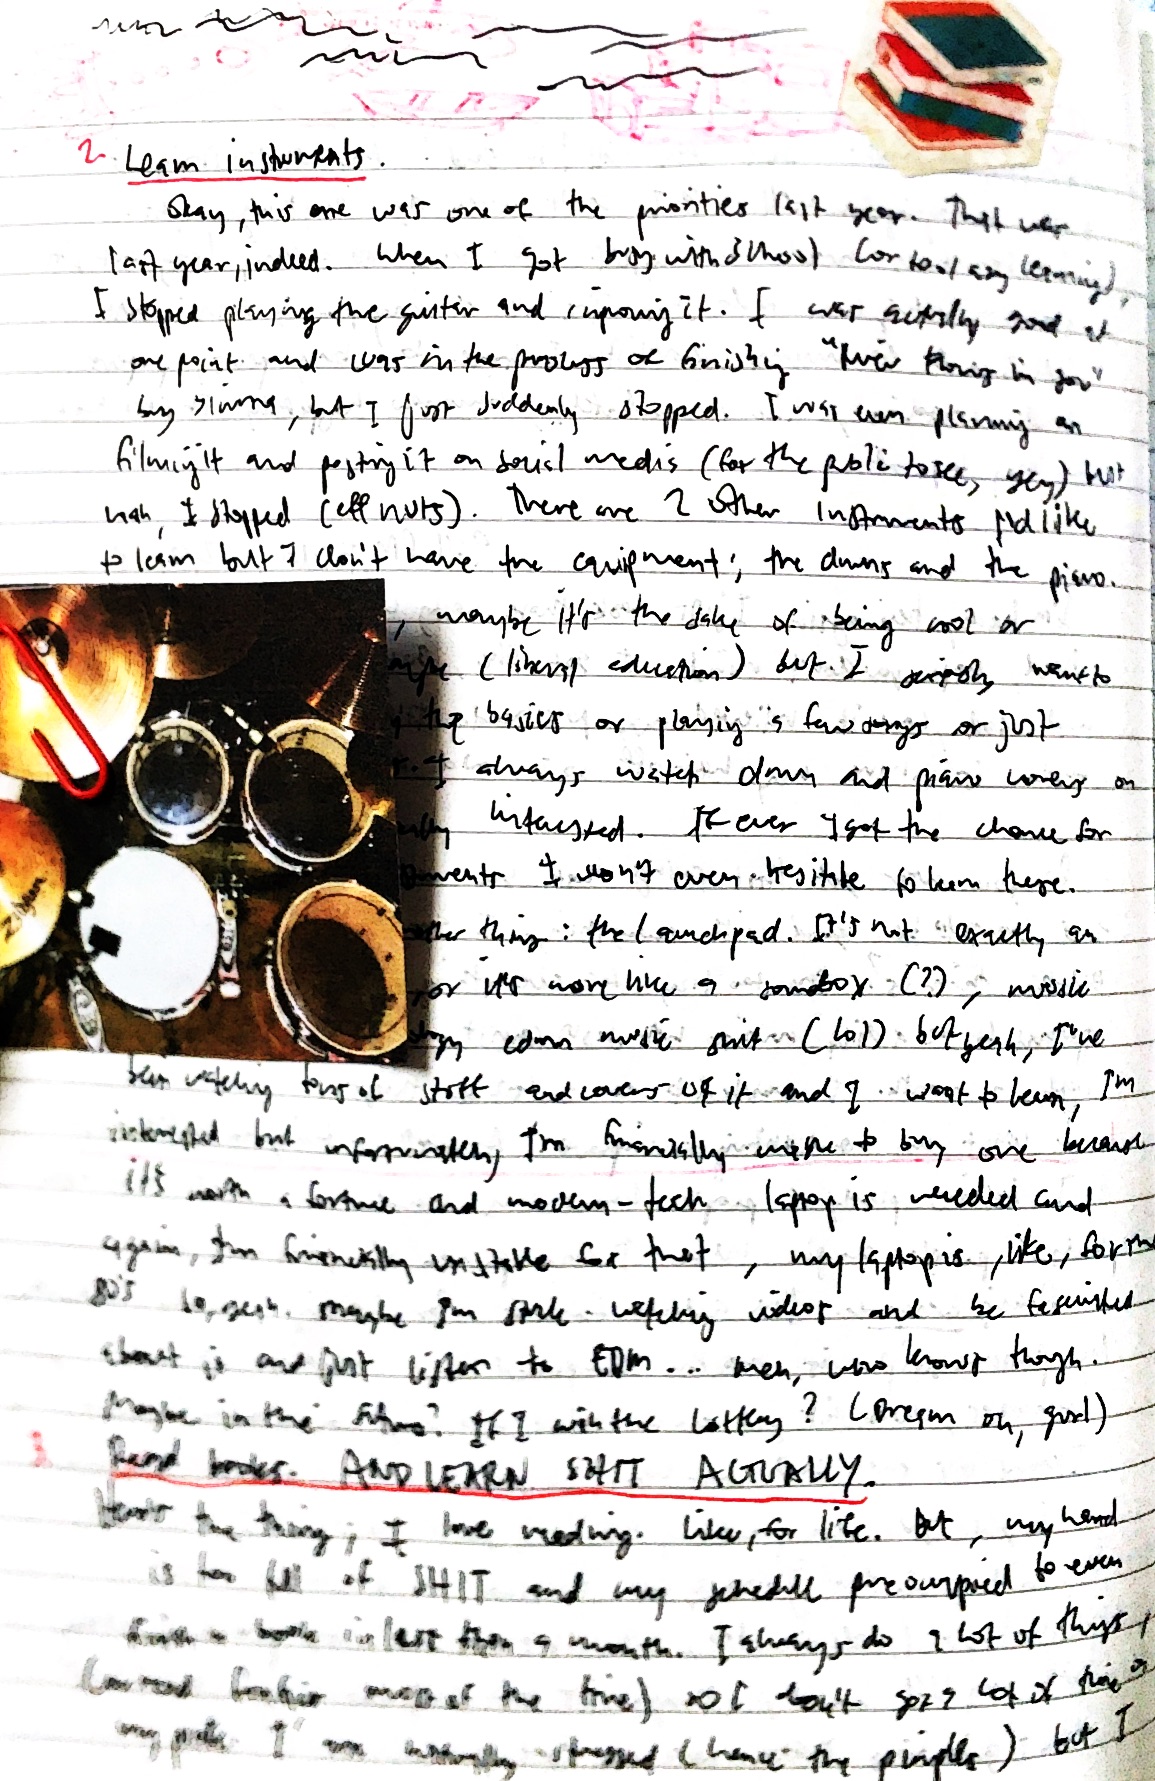 2. Learn instruments.
Okay, this one was one of the priorities last year. That was
last year, indeed. When I got busy with school (or too lazy learning),
I stopped playing the guitar and improving it. I was actually good at
one point and was in the process of finishing "River Flows in You"
by Yiruma, but I just suddenly stopped. I was even planning on
filming it and posting it on social media (for the public to see, yey) but
nah, I stopped (eff nuts). There are 2 other instruments I'd like
to learn but I don't have the equipment; the drums and the piano.
, maybe it's the sake of being cool or
(liberal education) but I seriously want to
the basics or playing a few songs or just
I always watch drum and piano covers on
interested. If ever I got the chance for
I won't even hesitate to learn these.
other thing: the launchpad. It's not exactly an
or it's more like a soundbox (?), music
edm music shit (lol) but yeah, I've
been watching tons of stuff and covers of it and I want to learn, I'm
interested but unfortunately, I'm financially unable to buy one because
it's worth a fortune and modern-tech laptop is needed and
again, I'm financially unstable for that, my laptop is, like, from
80's so, yeah. Maybe I'm stuck watching videos and be fascinated
about it and just listen to EDM... meh, who knows though.
Maybe in the future? If I win the lottery? (Dream on, gurl)
3. Read books. AND LEARN SHIT ACTUALLY.
Here's the thing; I love reading. Like, for life. But, my head
is too full of SHIT and my schedule preoccupied to even
finish a book in less than a month. I always do a lot of things,
most of the time) so I don't got a lot of time
I am stressed (hence the pimples) but I